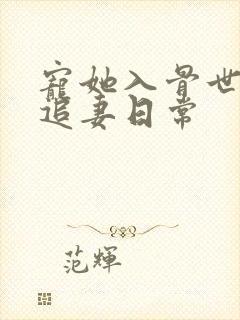 寵她入骨世
追妻日常
范輝